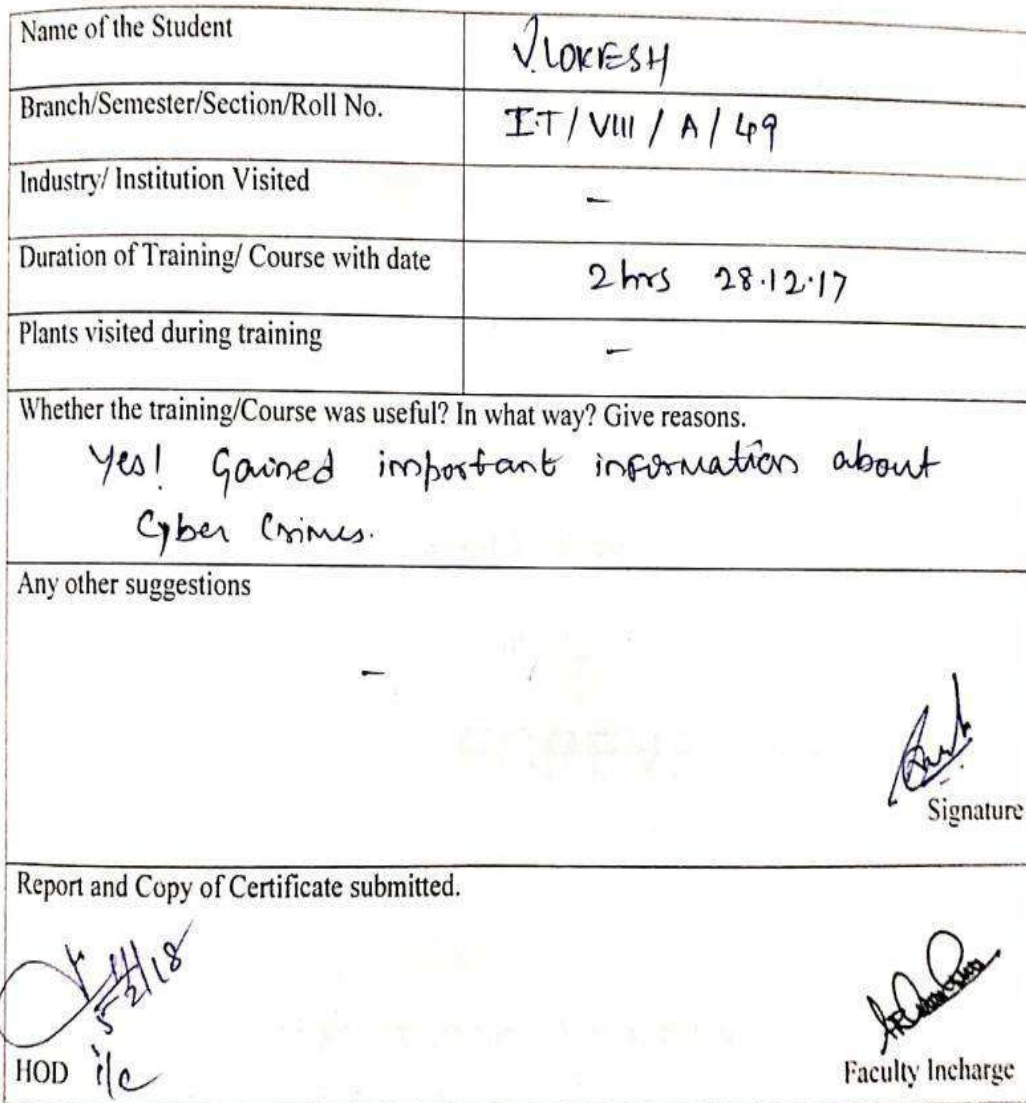 Name of the Student
V. LOKESH
Branch/Semester/Section/Roll No.
I.T / VIII / A / 49
Industry/ Institution Visited
-
Duration of Training/ Course with date
2 hrs 28.12.17
Plants visited during training
-
Whether the training/Course was useful? In what way? Give reasons.
Yes! Gained important information about
Cyber Crimes.
Any other suggestions
-
Signature
Report and Copy of Certificate submitted.
5/2/18
HOD i/c
Faculty Incharge